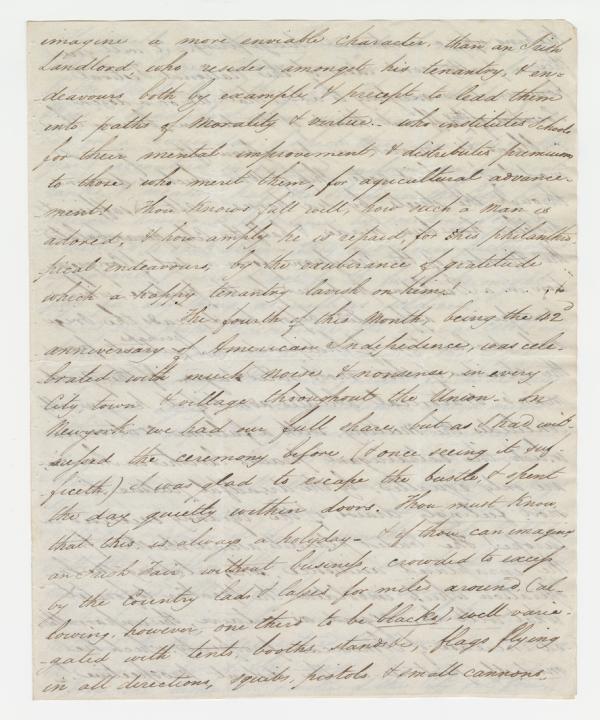 imagine a more enviable character, than an Irish
Landlord, who resides amongst his tenantry, & en=
-deavours both by example & precept to lead them
into paths of Morality & virtue.- who institutes Schools
for their mental improvement, & distributes premiums
to those, who merit them, for agricultural advance-
-ments. Thou knows full well, how such a man is
adored, & how amply he is repaid, for his philanthro
-pical endeavours, by the exuberance of gratitude
which a happy tenantry lavish on him!
The fourth of this Month, being the 42d
anniversary of American Independence, was cele-
-brated with much noise & nonsense, in every
City town & village throughout the Union. In
Newyork we had our full share, but as I had wit-
-nessed the ceremony before (& once seeing it suf-
-ficeth,) I was glad to escape the bustle, & spent
the day quietly within doors. Thou must know,
that this is always a holyday- & if thou can imagine
an Irish Fair, without business, crowded to excess
by the Country lads & lasses for miles around, (al-
-lowing however one third to be blacks) well varie-
-gated with tents, booths, stands &c, flags flying
in all directions, squibs, pistols & small cannons